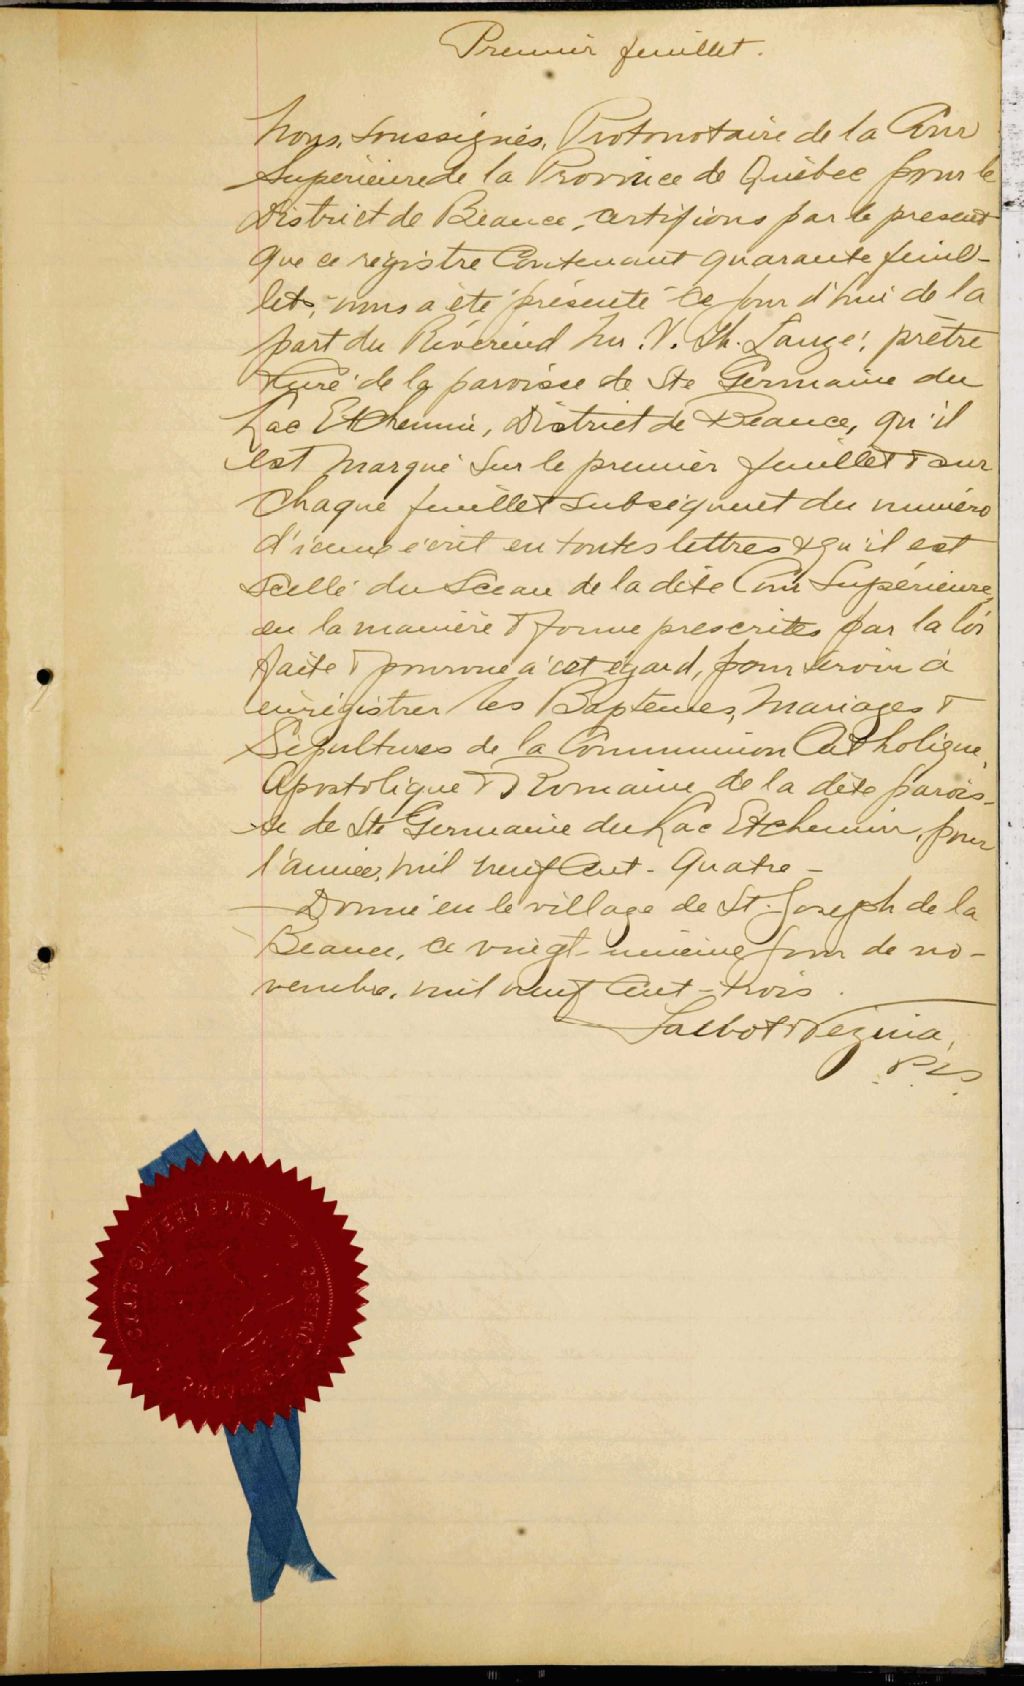 Premier feuillet.
Nous, soussignés, Protonotaire de la Cour
Supérieure de la Province de Québec pour le
District de Beauce, certifions par le present
que ce régistre Contenant quarante feuil-
lets, nous a été présenté ce jour d'hui de la
part du Révérend Mr. V. Th. Lauzé, prêtre
Curé de la paroisse de Ste Germaine du
Lac Etchemin, District de Beauce, qu'il
est marqué sur le premier feuillet & sur
chaque feuillet subséquent du numéro
d'icelui écrit en toutes lettres & qu'il est
scellé du Sceau de la dite Cour Supérieure,
en la manière & forme prescrites par la loi
faite & pourvue à cet égard, pour servir à
enrégistrer les Baptêmes, Mariages &
Sépultures de la Communion Catholique,
Apostolique & Romaine de la dite parois-
se de Ste Germaine du Lac Etchemin, pour
l'année, mil neuf Cent-quatre -
Donné en le village de St. Joseph de la
Beauce, ce vingt-unième jour de no-
vembre, mil neuf Cent-trois.
Talbot & Vézina,
P.C.S.
COUR SUPERIEURE
PROVINCE DE QUEBEC